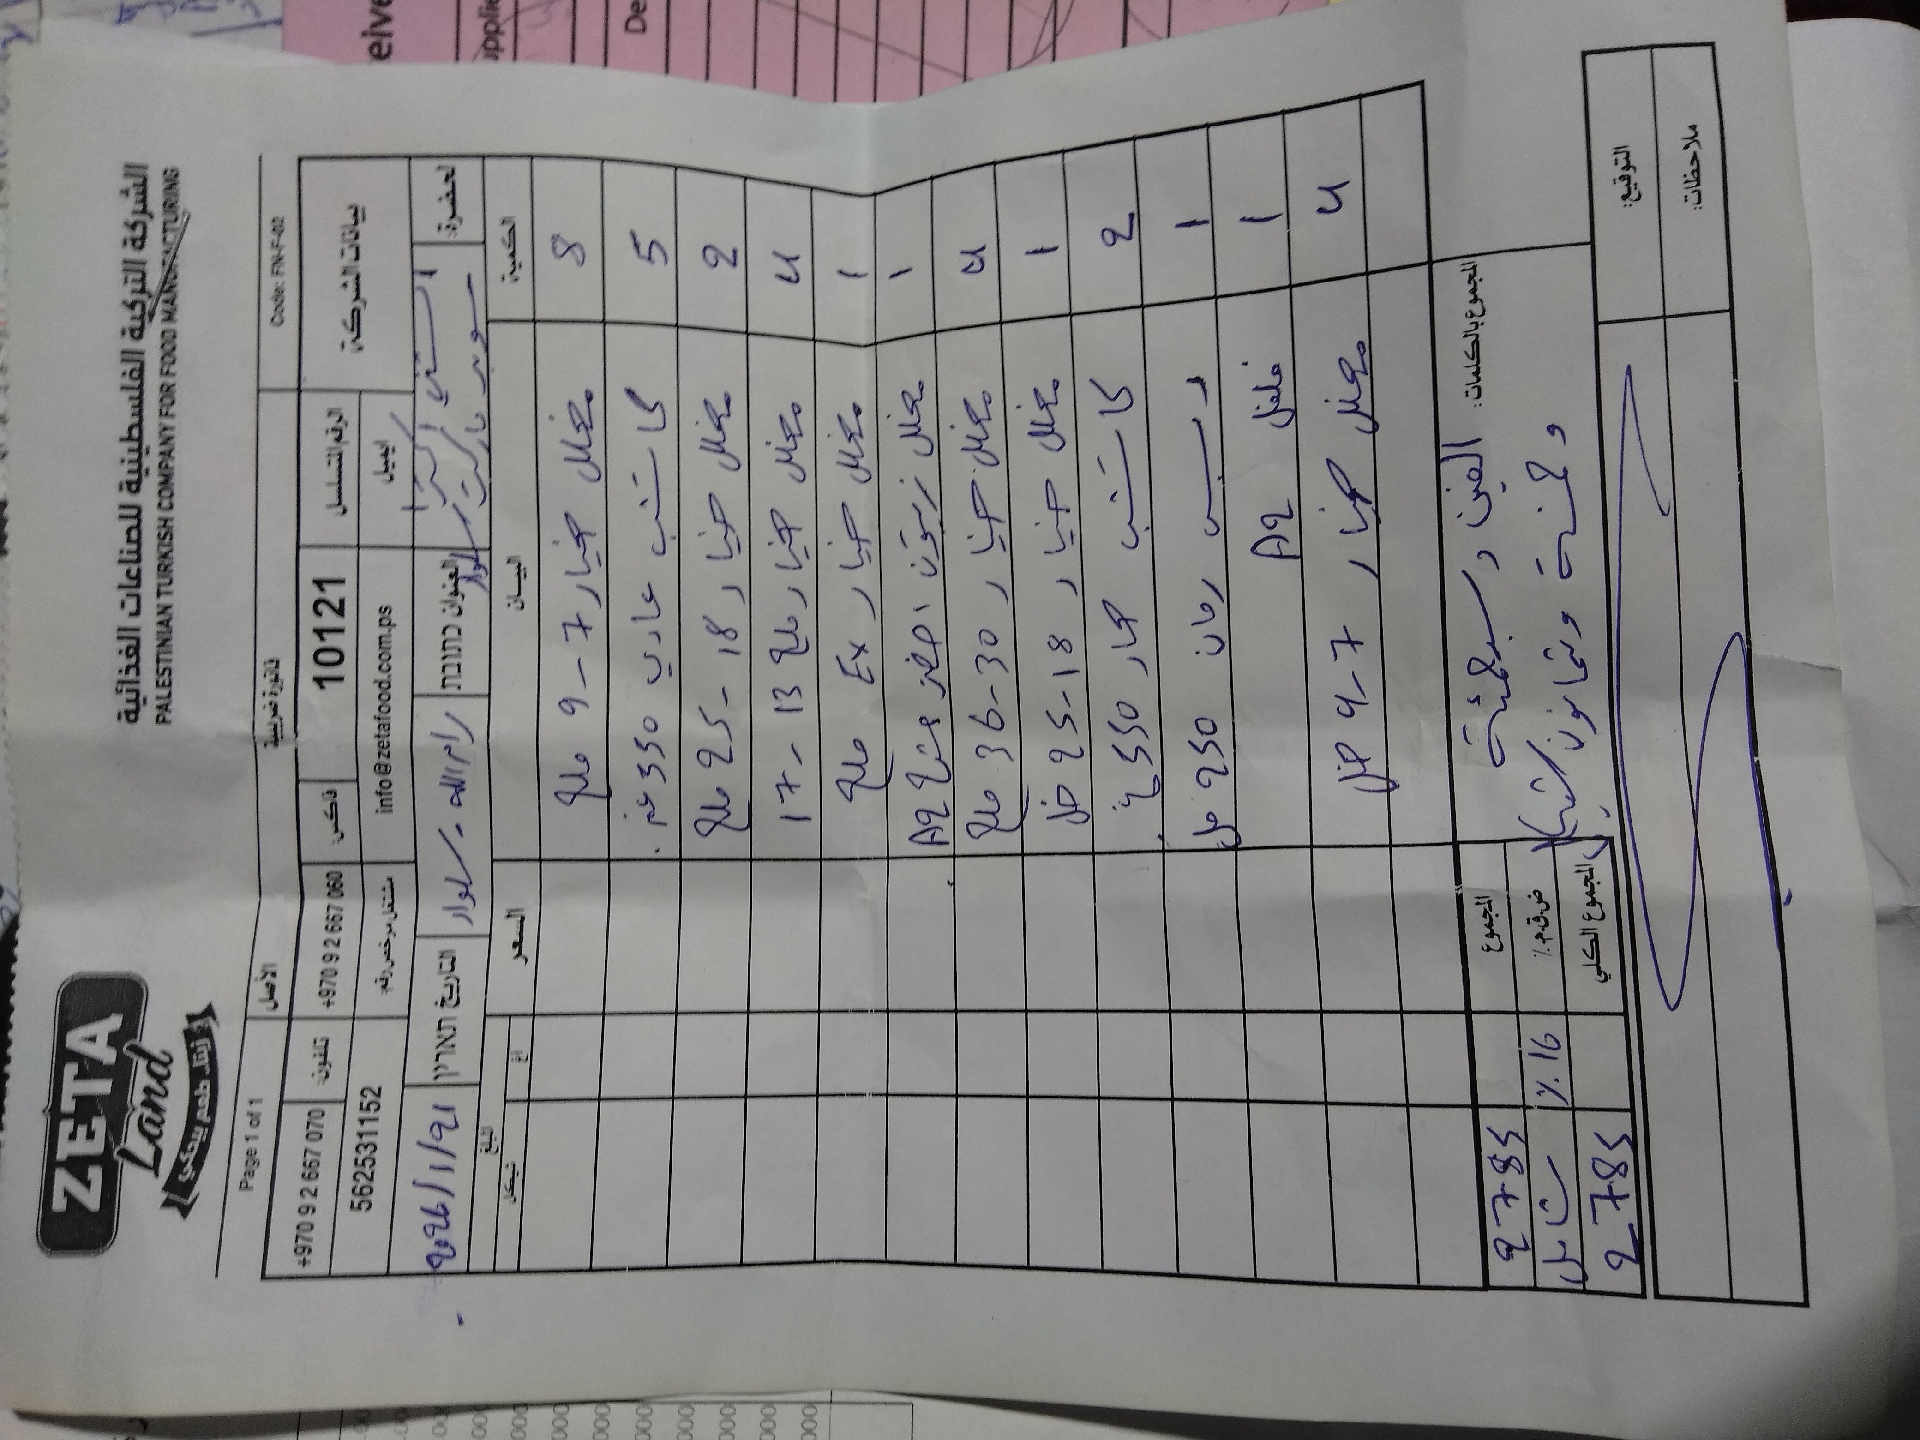 ZETA
Land
زيتا.. طعم بيحكي
الشركة التركية الفلسطينية للصناعات الغذائية
PALESTINIAN TURKISH COMPANY FOR FOOD MANUFACTURING
Code: FN-F-02
فاتورة ضريبية
الأصل
Page 1 of 1
بيانات الشركة
الرقم التسلسل
10121
فاكس:
+970 9 2 667 060
تلفون:
+970 9 2 667 070
ايميل
info@zetafood.com.ps
مشتغل مرخص رقم:
562531152
لحضرة:
سوبر ماركت
العنوان כתובת
رام الله -
التاريخ תאריך
الكمية
البيــان
السعر
المبلغ
اغ
شيكل
8 مخلل خيار 7-9 ملح
5 كاتشب عادي 550 غم
2 مخلل خيار 18-25 ملح
4 مخلل خيار ملح 13-17
1 مخلل خيار Ex ملح
1 مخلل زيتون اخضر A9
4 مخلل خيار 30-36 ملح
1 مخلل خيار 18-25 خل
2 كاتشب حار 550 غ
1 دبس رمان 250 مل
1 فلفل A9
4 مخلل خيار 7-9 خل
المجموع بالكلمات:
الفين و سبعمئة
و خمسة وثمانون شيكل
المجموع
2785
ض.ق.م.٪
16٪ شامل
المجموع الكلي
2785
التوقيع:
ملاحظات: